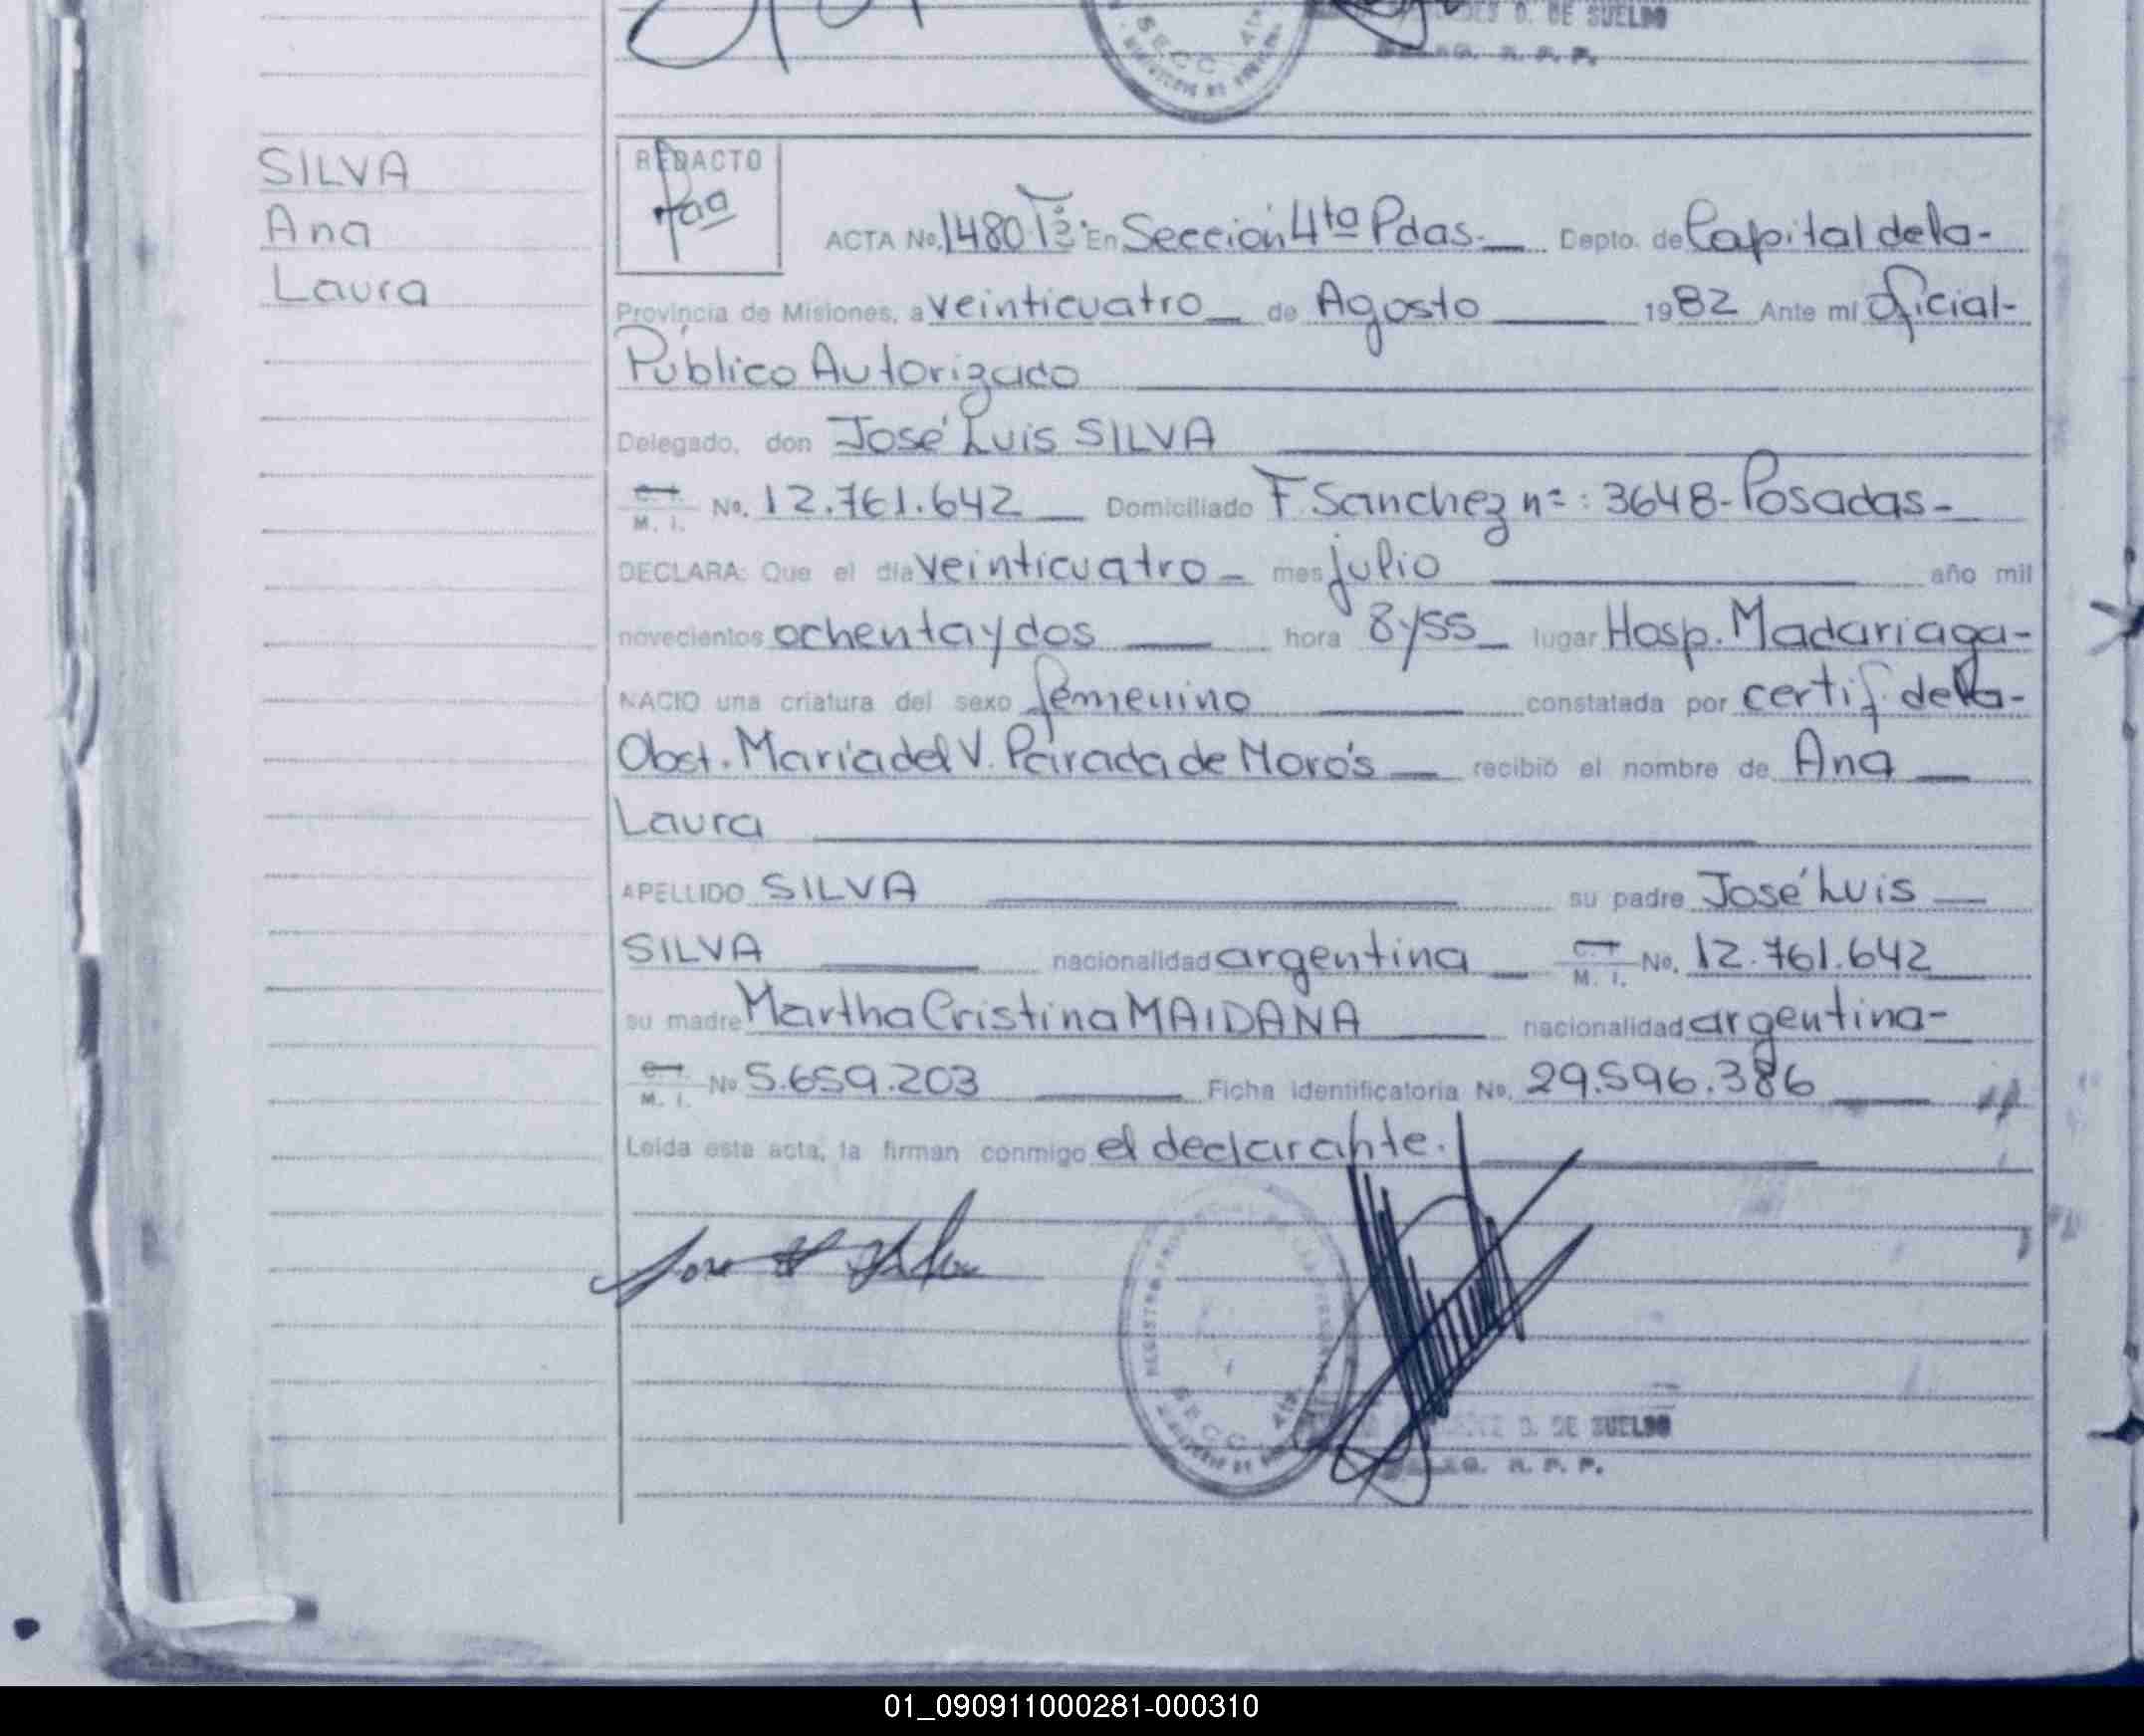 D. DE SUELDO
R. P. P.
SECC 4ta
SILVA
Ana
Laura
REDACTO
ACTA No. 1480 Tº 3º En Sección 4ta Pdas.- Depto. de Capital de la-
Provincia de Misiones, a veinticuatro de Agosto 1982 Ante mi Oficial-
Público Autorizado
Delegado, don José Luis SILVA
C. I. M. I. No. 12.761.642 Domiciliado F. Sanchez nº: 3648-Posadas-
DECLARA: Que el día veinticuatro mes julio año mil
novecientos ochenta y dos hora 8 y 55 lugar Hosp. Madariaga-
NACIO una criatura del sexo femenino constatada por certif. de la-
Obst. María del V. de Morós recibió el nombre de Ana
Laura
APELLIDO SILVA su padre José Luis
SILVA nacionalidad argentina C. I. M. I. No. 12.761.642
su madre Martha Cristina MAIDANA nacionalidad argentina-
C. I. M. I. No 5.659.203 Ficha Identificatoria No. 29.596.386
Leída esta acta, la firman conmigo el declarante.
SECC 4ta
D. DE SUELDO
R. P. P.
01_090911000281-000310